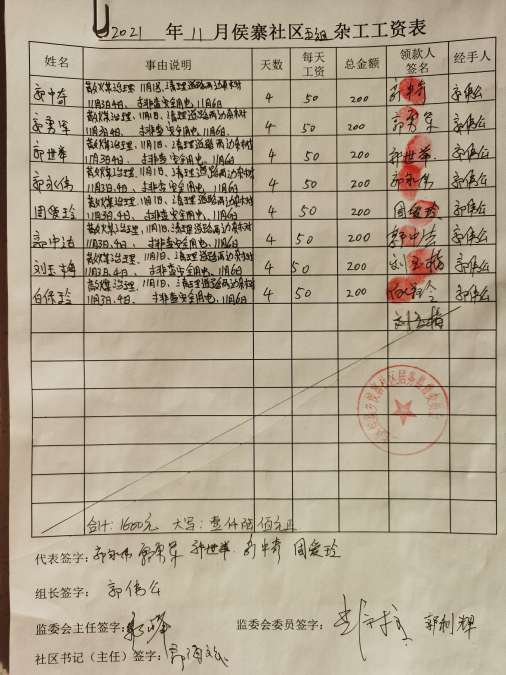 2021 年 11 月侯寨社区五组杂工工资表
姓名 事由说明 天数 每天工资 总金额 领款人签名 经手人
郭中奇 散煤治理，11月1日，清理道路两边杂树 11月3日4日，排查安全用电，11月6日 4 50 200 郭中奇 郭伟公
郭秀军 散煤治理，11月1日，清理道路两边杂树 11月3日4日，排查安全用电，11月6日 4 50 200 郭秀军 郭伟公
郭世华 散煤治理，11月1日，清理道路两边杂树 11月3日4日，排查安全用电，11月6日 4 50 200 郭世华 郭伟公
郭永伟 散煤治理，11月1日，清理道路两边杂树 11月3日4日，排查安全用电，11月6日 4 50 200 郭永伟 郭伟公
周爱玲 散煤治理，11月1日，清理道路两边杂树 11月3日4日，排查安全用电，11月6日 4 50 200 周爱玲 郭伟公
郭中洁 散煤治理，11月1日，清理道路两边杂树 11月3日4日，排查安全用电，11月6日 4 50 200 郭中洁 郭伟公
刘玉梅 散煤治理，11月1日，清理道路两边杂树 11月3日4日，排查安全用电，11月6日 4 50 200 刘玉梅 郭伟公
白保玲 散煤治理，11月1日，清理道路两边杂树 11月3日4日，排查安全用电，11月6日 4 50 200 郭伟公
合计：1600元 大写：壹仟陆佰元正
代表签字：郭永伟 郭秀军 郭世华 郭中奇 周爱玲
组长签字：郭伟公
监委会主任签字： 监委会委员签字： 郭利辉
社区书记（主任）签字：